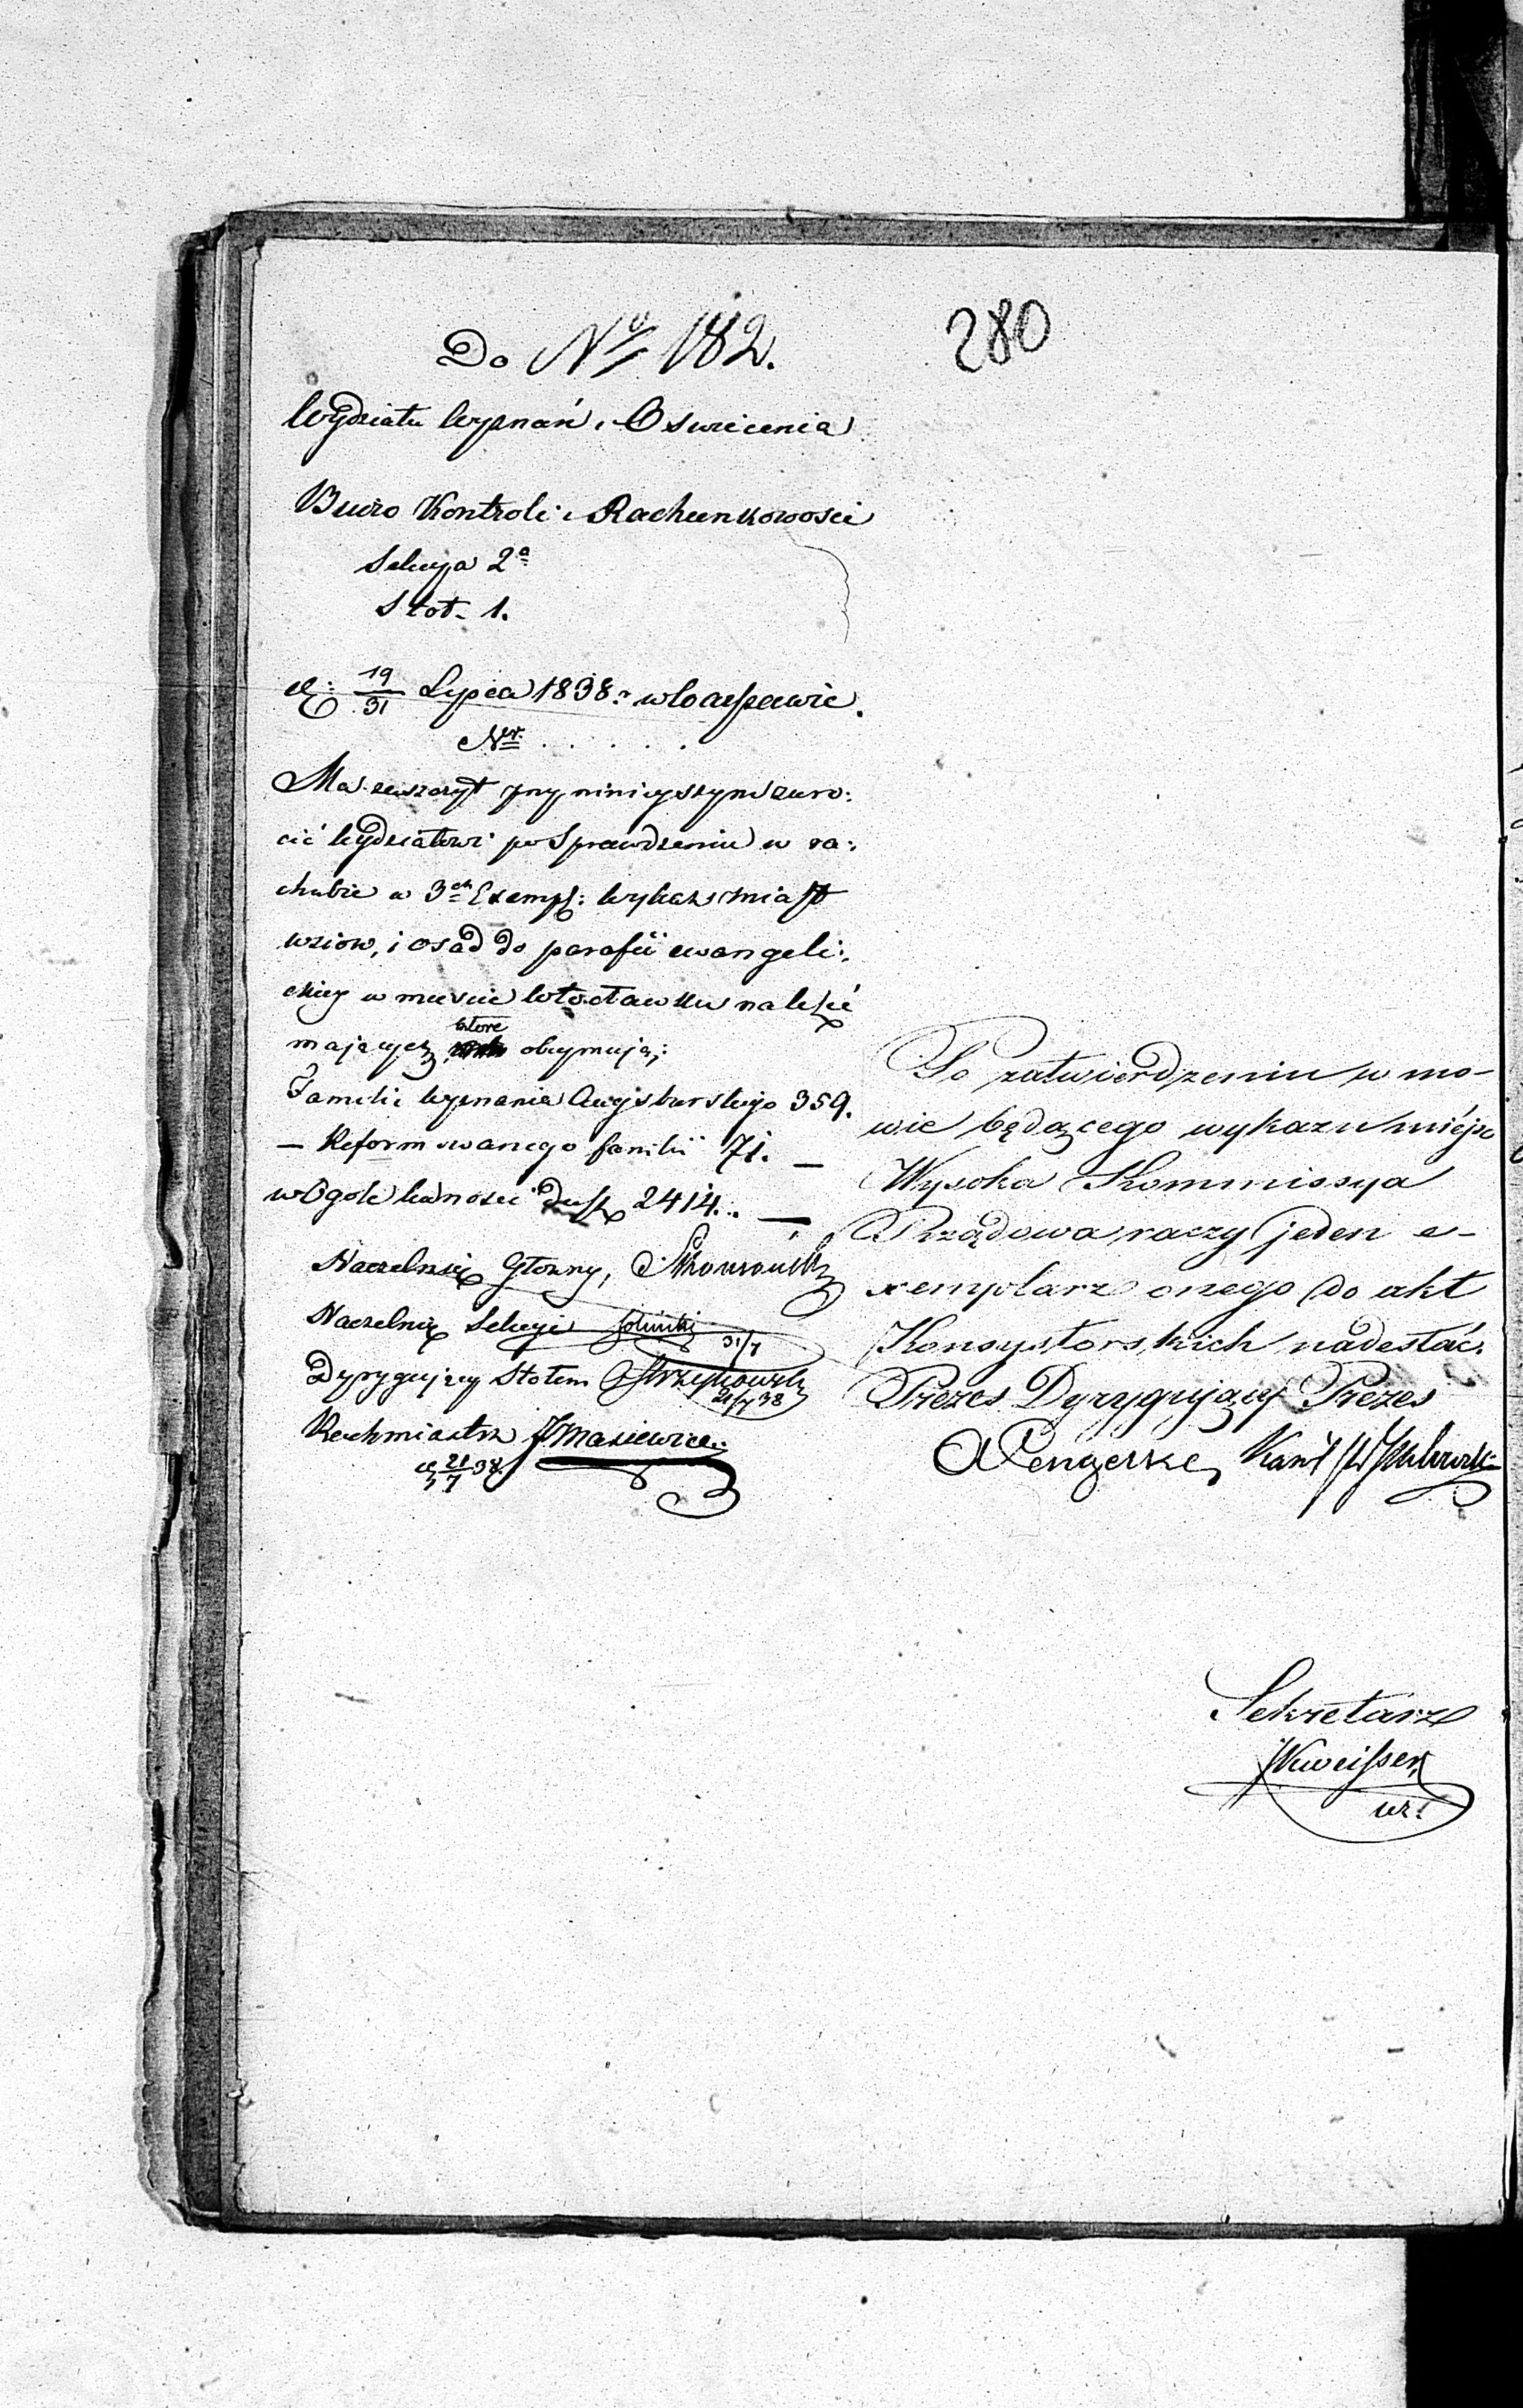 Do Nº 182.
280
Wydziału Wyznań i Oswiecenia
Biuro Kontroli i Rachunkowosci
Sekcya 2ª
Stół 1.
d: 19/31 Lipca 1838 r. w Warszawie.
Ner. . . . . .
Ma zaszczyt przy niniejszym zwró:
cić Wydziałowi po Sprawdzeniu w ra:
chubie w 3ch Exempl: Wykaz miast
wsiow, i osad do parafii ewangeli:
ckiey w miescie Włocławku należeć
mających, które obeymują:
Familie wyznania Augsburskiego 359.
— Reformowanego familii 71. —
w Ogole ludnosci dusz 2414. —
Naczelnik Głowny,
Naczelnik Sekcyi 31/7
Dyrygujący Stołem 21/7 38
Rachmistrz
d 21/7 38
Po zatwierdzeniu w mo-
wie będącego wykazu miéjsc
Wysoka Kommissya
Rządowa raczy jeden e-
xemplarz onego do akt
Konsystorskich nadesłać.
Prezes Dyrygujący Prezes
Sekretarz